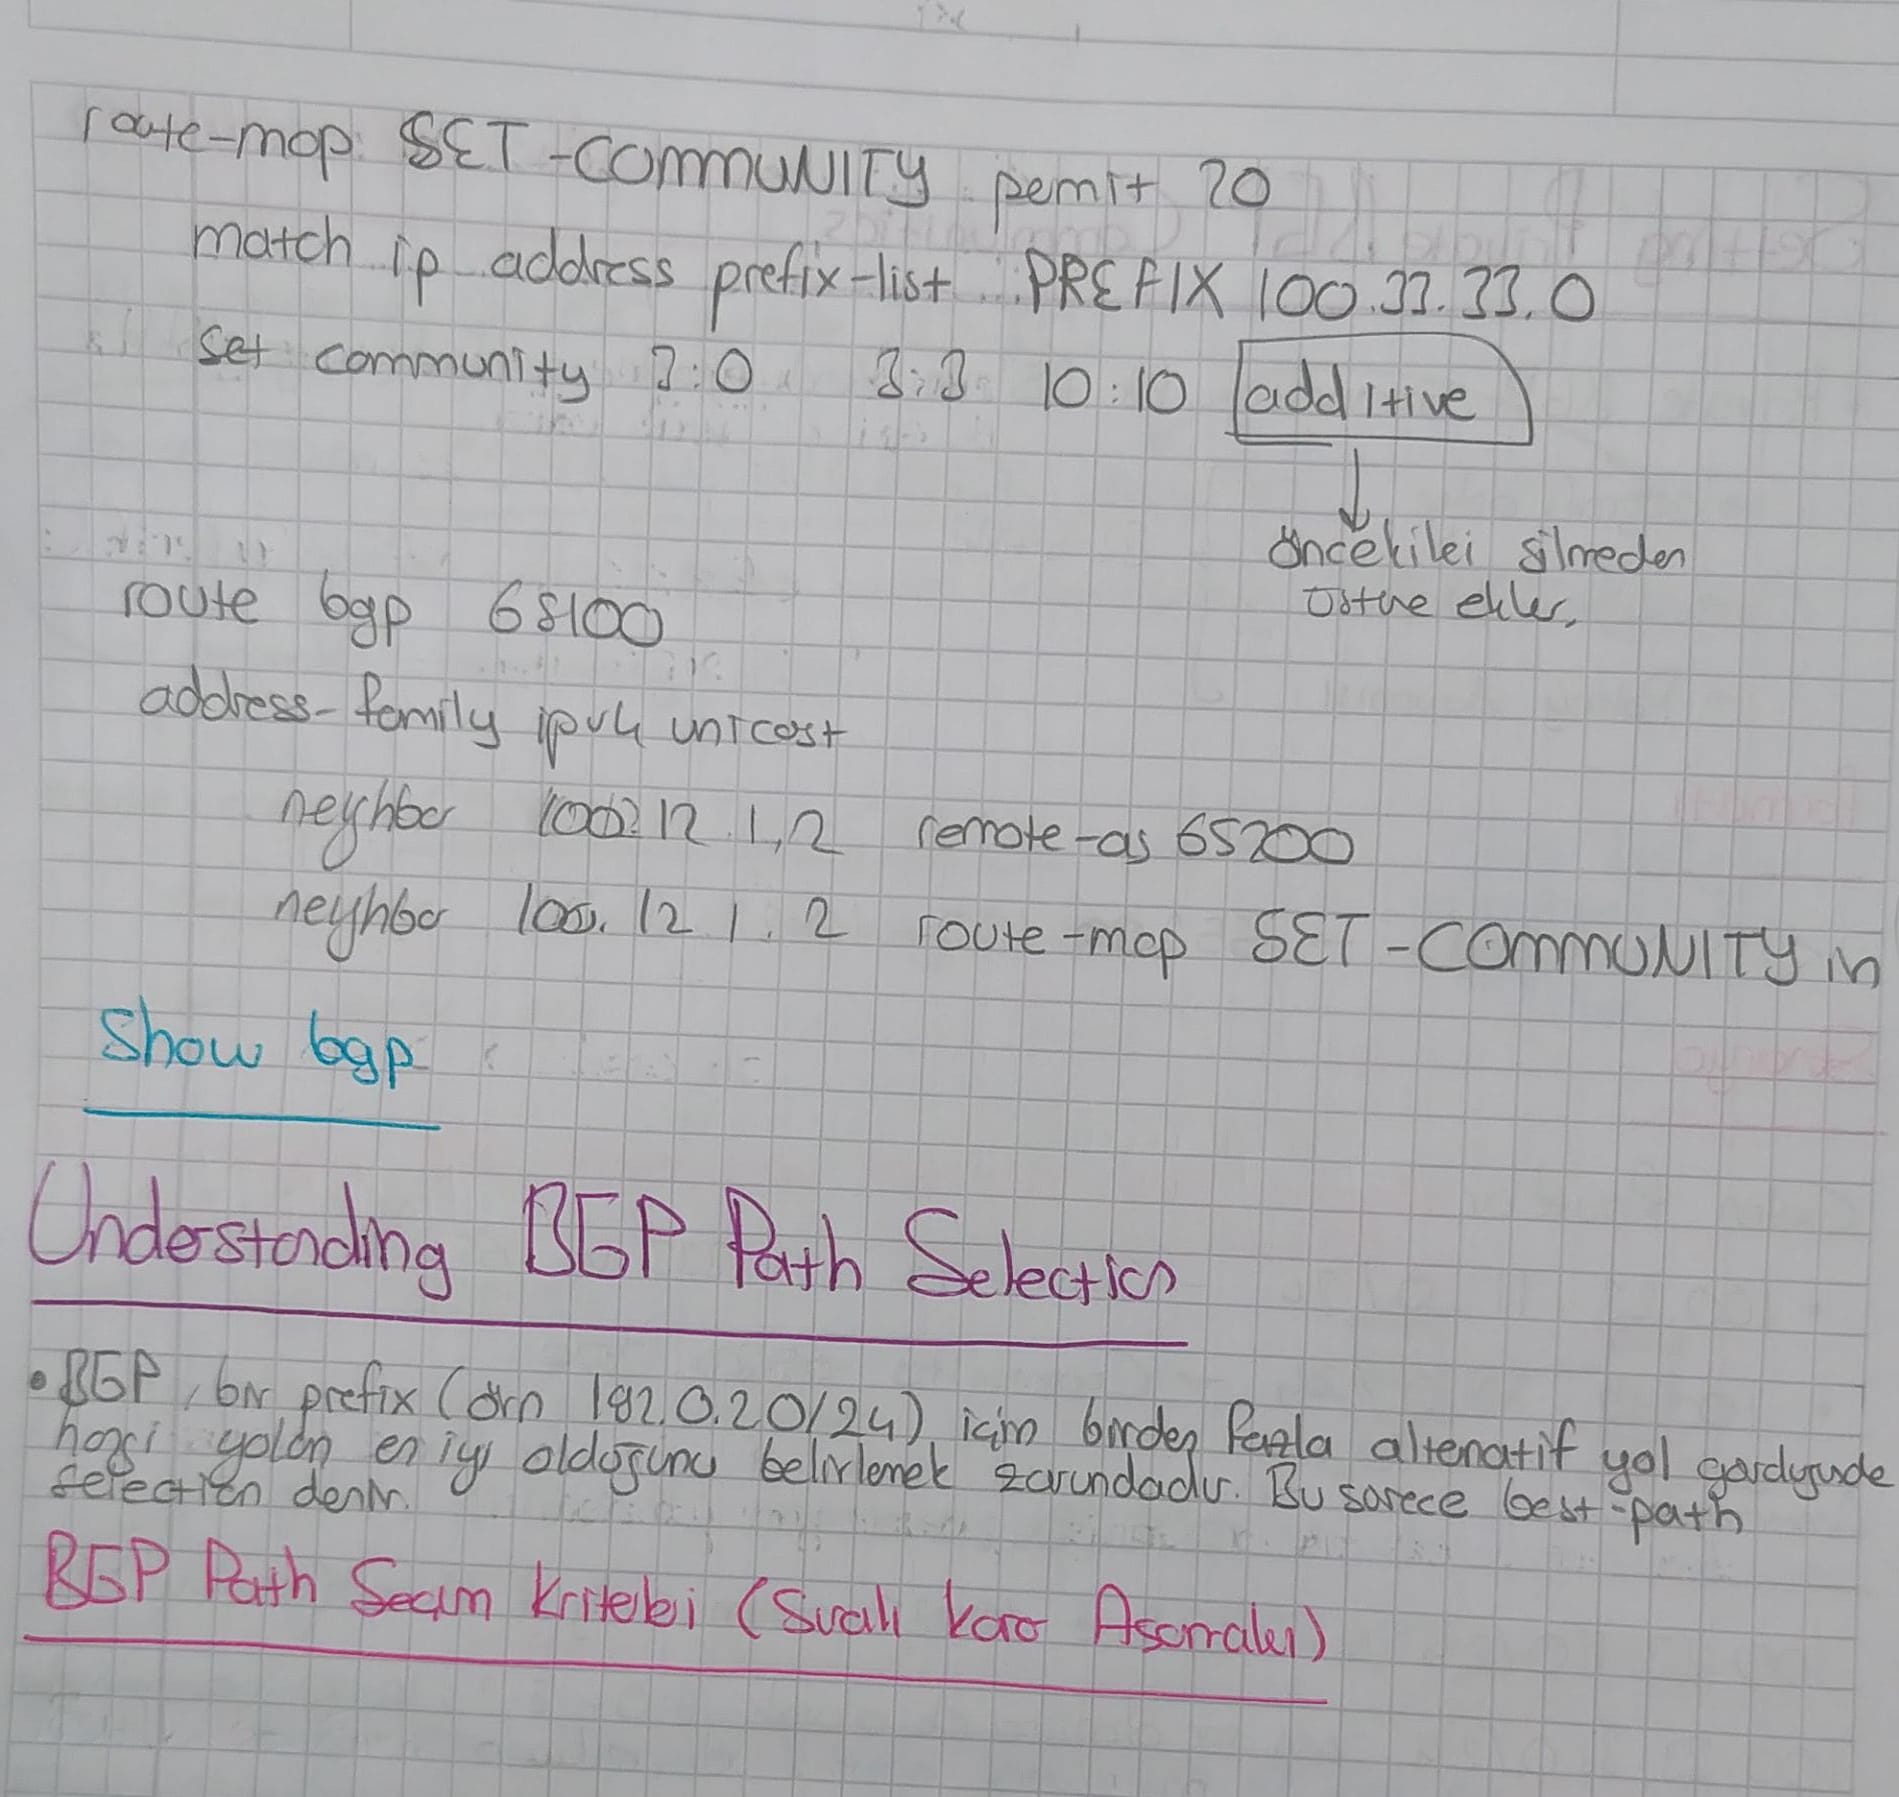 route-map SET-COMMUNITY permit 20
match ip address prefix-list PREFIX 100.33.33.0
set community 3:0 3:3 10:10 additive
öncekileri silmeden
üstüne ekler.
route bgp 65100
address-family ipv4 unicast
neighbor 100.12.1.2 remote-as 65200
neighbor 100.12.1.2 route-map SET-COMMUNITY in
Show bgp
Understanding BGP Path Selection
• BGP, bir prefix (örn 192.0.20/24) için birden fazla alternatif yol gördüğünde
hangi yolun en iyi olduğunu belirlemek zorundadır. Bu sürece best-path
selection denir.
BGP Path Seçim Kriterleri (Sıralı Karar Aşamaları)